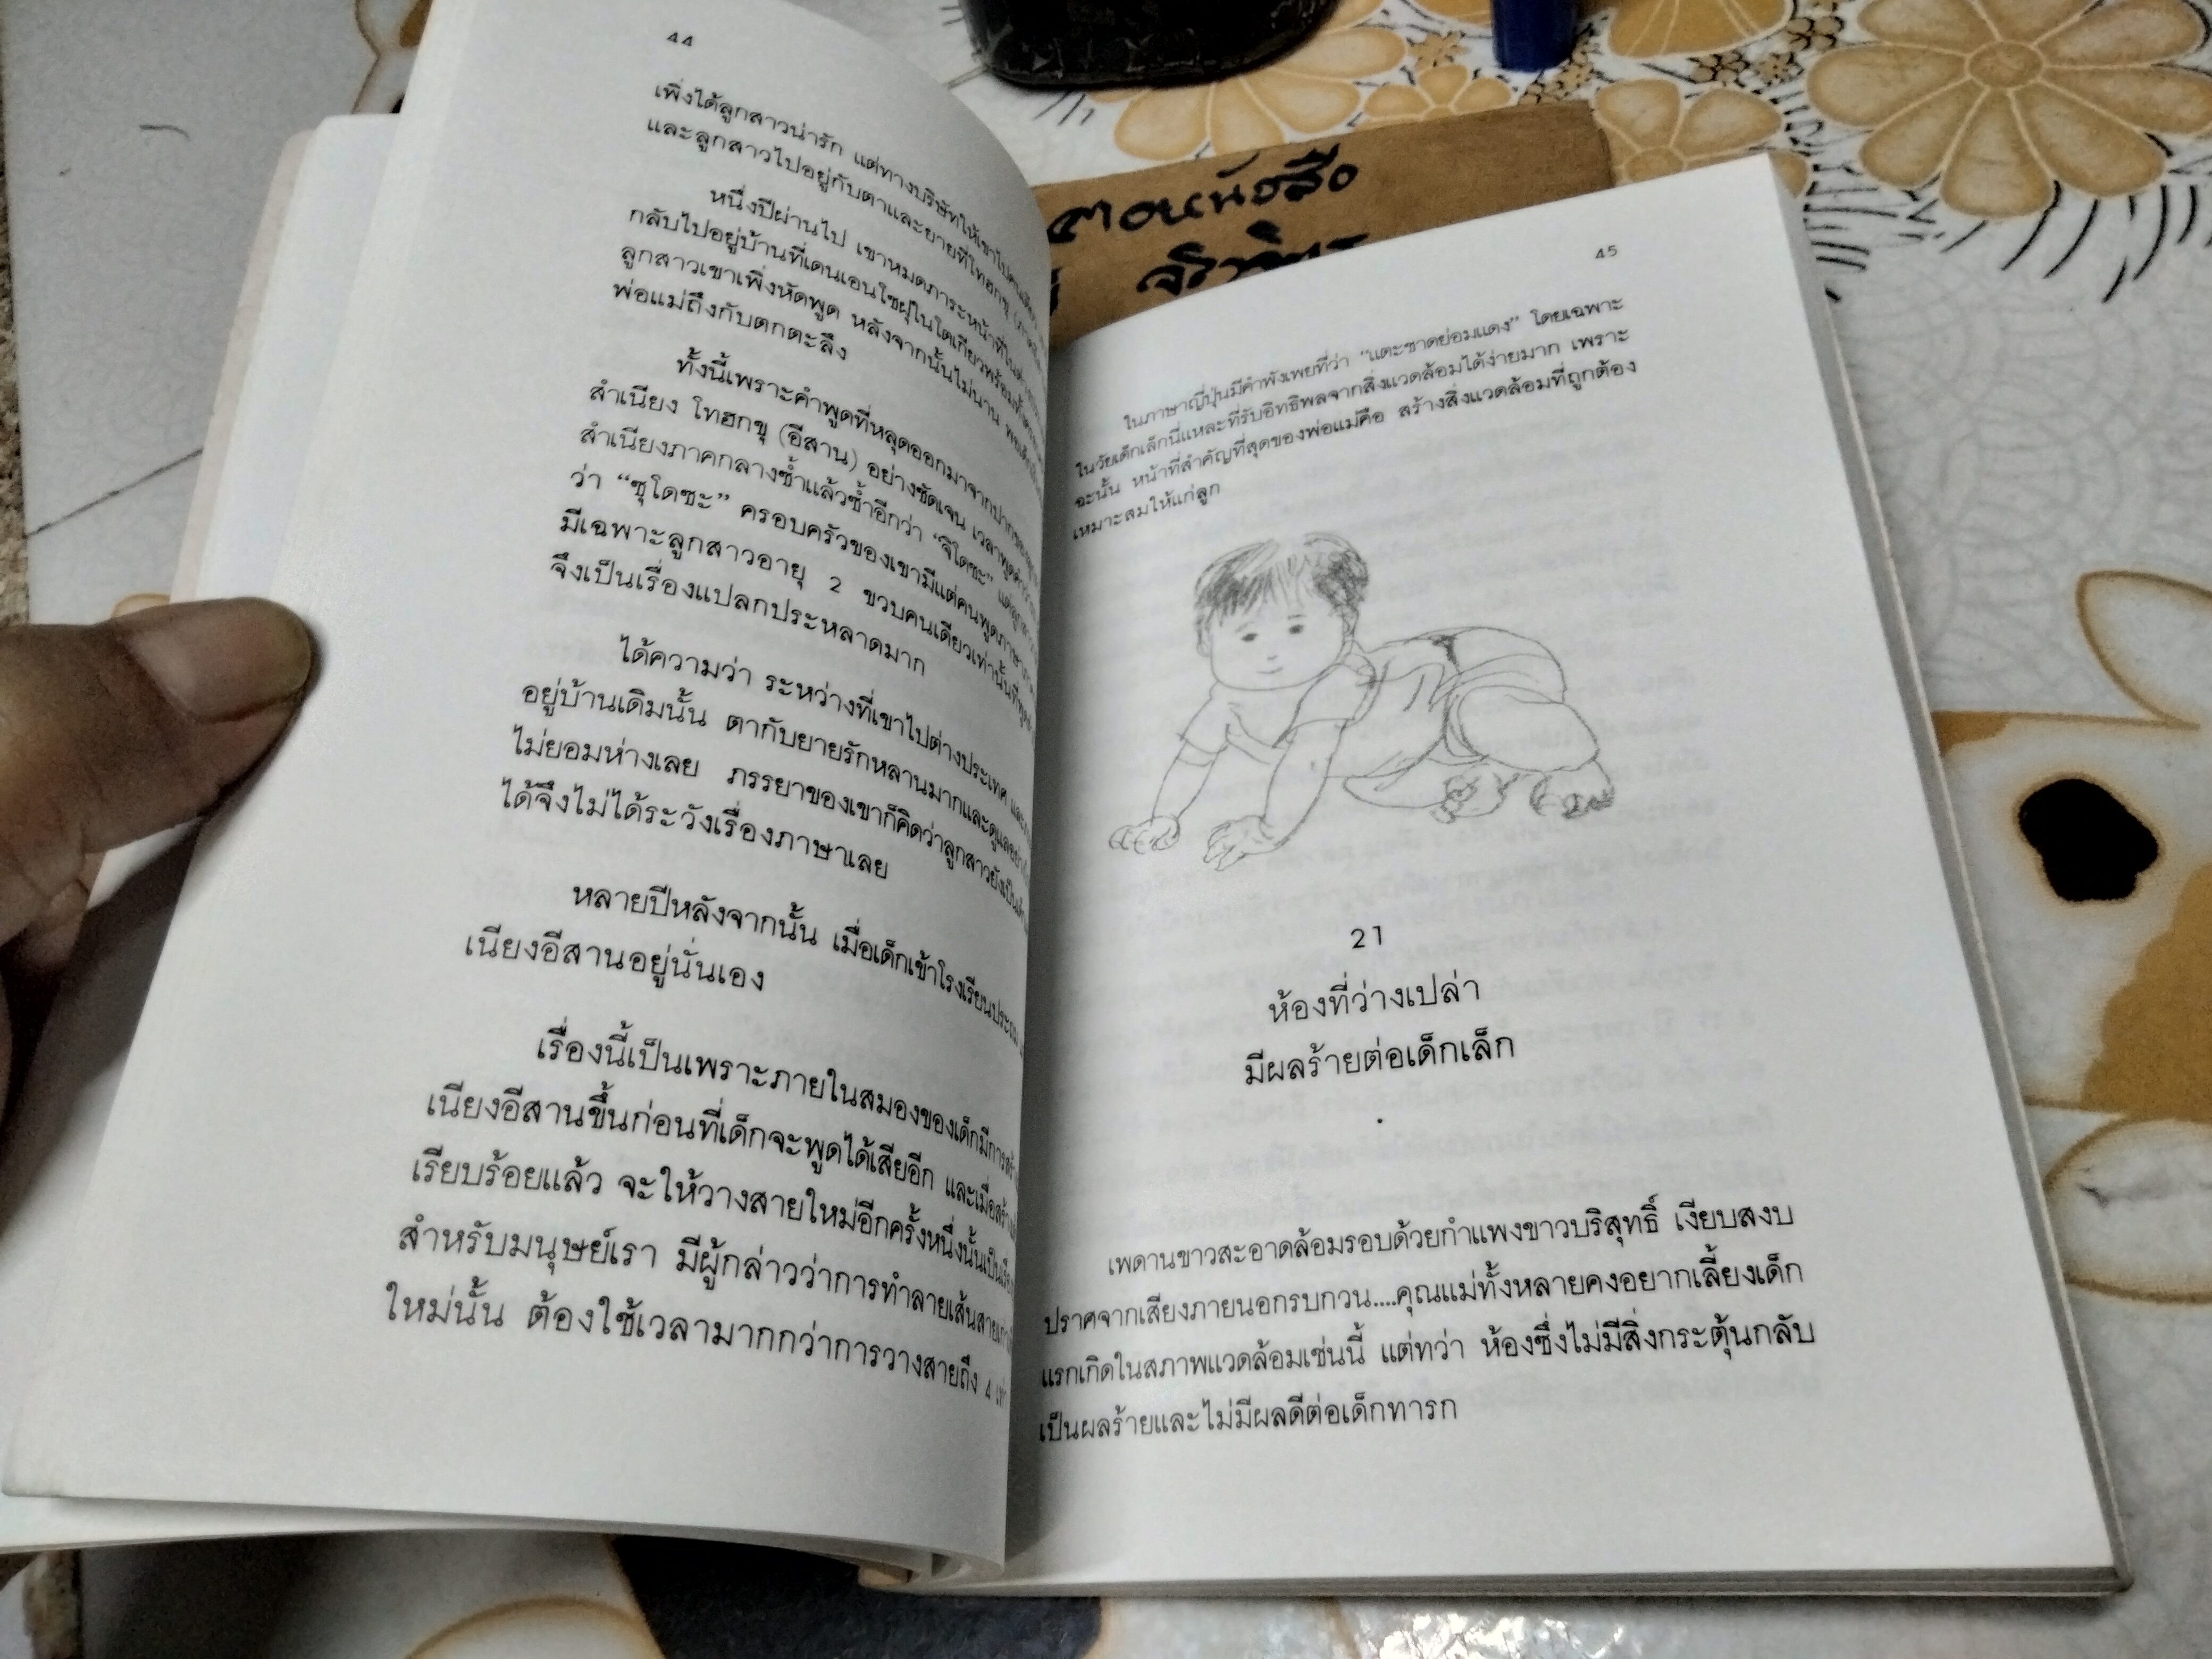 44
เพิ่งได้ลูกสาวน่ารัก แต่ทางบริษัทให้เขาไป
และลูกสาวไปอยู่กับตาและยายที่โทฮกขุ
หนึ่งปีผ่านไป เขาหมดภาระหน้าที่ใน
กลับไปอยู่บ้านที่เดนเอนโชฝุในโตเกียวพร้อมทั้ง
ลูกสาวเขาเพิ่งหัดพูด หลังจากนั้นไม่นาน
พ่อแม่ถึงกับตกตะลึง
ทั้งนี้เพราะคำพูดที่หลุดออกมาจากปากของ
สำเนียง โทฮกขุ (อีสาน) อย่างชัดเจน เวลาพูดคำว่า
สำเนียงภาคกลางซ้ำแล้วซ้ำอีกว่า "จิโดชะ" แต่ลูกสาว
ว่า "ซุโดซะ" ครอบครัวของเขามีแต่คนพูดภาษา
มีเฉพาะลูกสาวอายุ 2 ขวบคนเดียวเท่านั้นที่พูด
จึงเป็นเรื่องแปลกประหลาดมาก
ได้ความว่า ระหว่างที่เขาไปต่างประเทศ และ
อยู่บ้านเดิมนั้น ตากับยายรักหลานมากและดูแลอย่าง
ไม่ยอมห่างเลย ภรรยาของเขาก็คิดว่าลูกสาวยังเป็น
ได้จึงไม่ได้ระวังเรื่องภาษาเลย
หลายปีหลังจากนั้น เมื่อเด็กเข้าโรงเรียน
เนียงอีสานอยู่นั่นเอง
เรื่องนี้เป็นเพราะภายในสมองของเด็กมีการ
เนียงอีสานขึ้นก่อนที่เด็กจะพูดได้เสียอีก และเมื่อสร้าง
เรียบร้อยแล้ว จะให้วางสายใหม่อีกครั้งหนึ่งนั้นเป็น
สำหรับมนุษย์เรา มีผู้กล่าวว่าการทำลายเส้นสายเก่า
ใหม่นั้น ต้องใช้เวลามากกว่าการวางสายถึง 4
หนังสือ
45
ในภาษาญี่ปุ่นมีคำพังเพยที่ว่า "แตะชาดย่อมแดง" โดยเฉพาะ
ในวัยเด็กเล็กนี่แหละที่รับอิทธิพลจากสิ่งแวดล้อมได้ง่ายมาก เพราะ
ฉะนั้น หน้าที่สำคัญที่สุดของพ่อแม่คือ สร้างสิ่งแวดล้อมที่ถูกต้อง
เหมาะสมให้แก่ลูก
21
ห้องที่ว่างเปล่า
มีผลร้ายต่อเด็กเล็ก
เพดานขาวสะอาดล้อมรอบด้วยกำแพงขาวบริสุทธิ์ เงียบสงบ
ปราศจากเสียงภายนอกรบกวน....คุณแม่ทั้งหลายคงอยากเลี้ยงเด็ก
แรกเกิดในสภาพแวดล้อมเช่นนี้ แต่ทว่า ห้องซึ่งไม่มีสิ่งกระตุ้นกลับ
เป็นผลร้ายและไม่มีผลดีต่อเด็กทารก